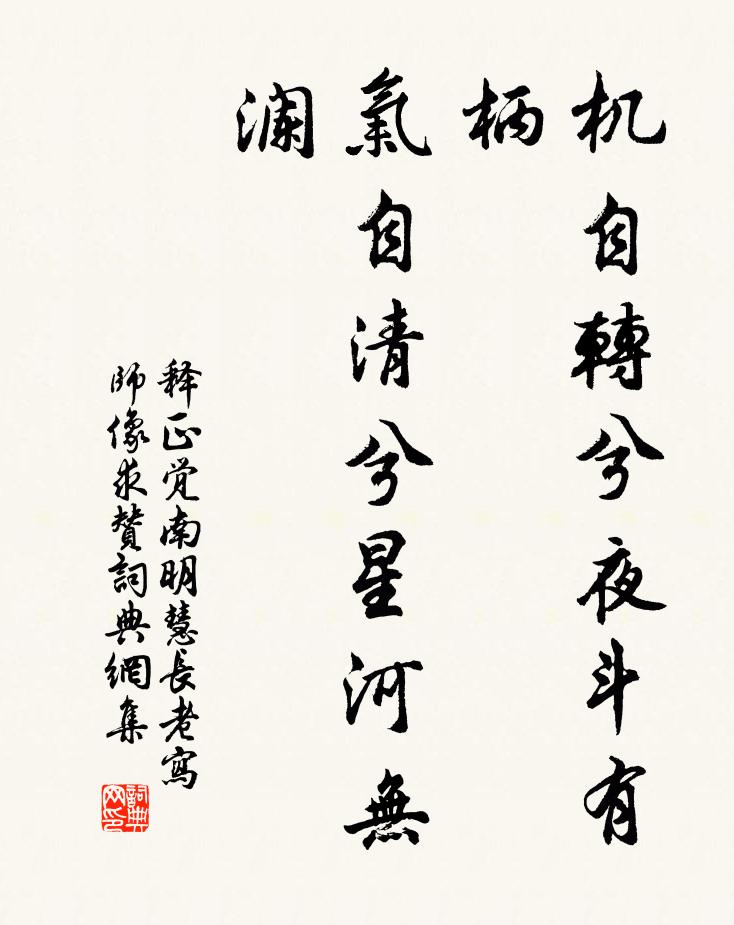 机自轉兮夜斗有
柄
氣自清兮星河無
瀾
释正觉南明慧長老寫
師像求贊詞典網集
詞典
网印